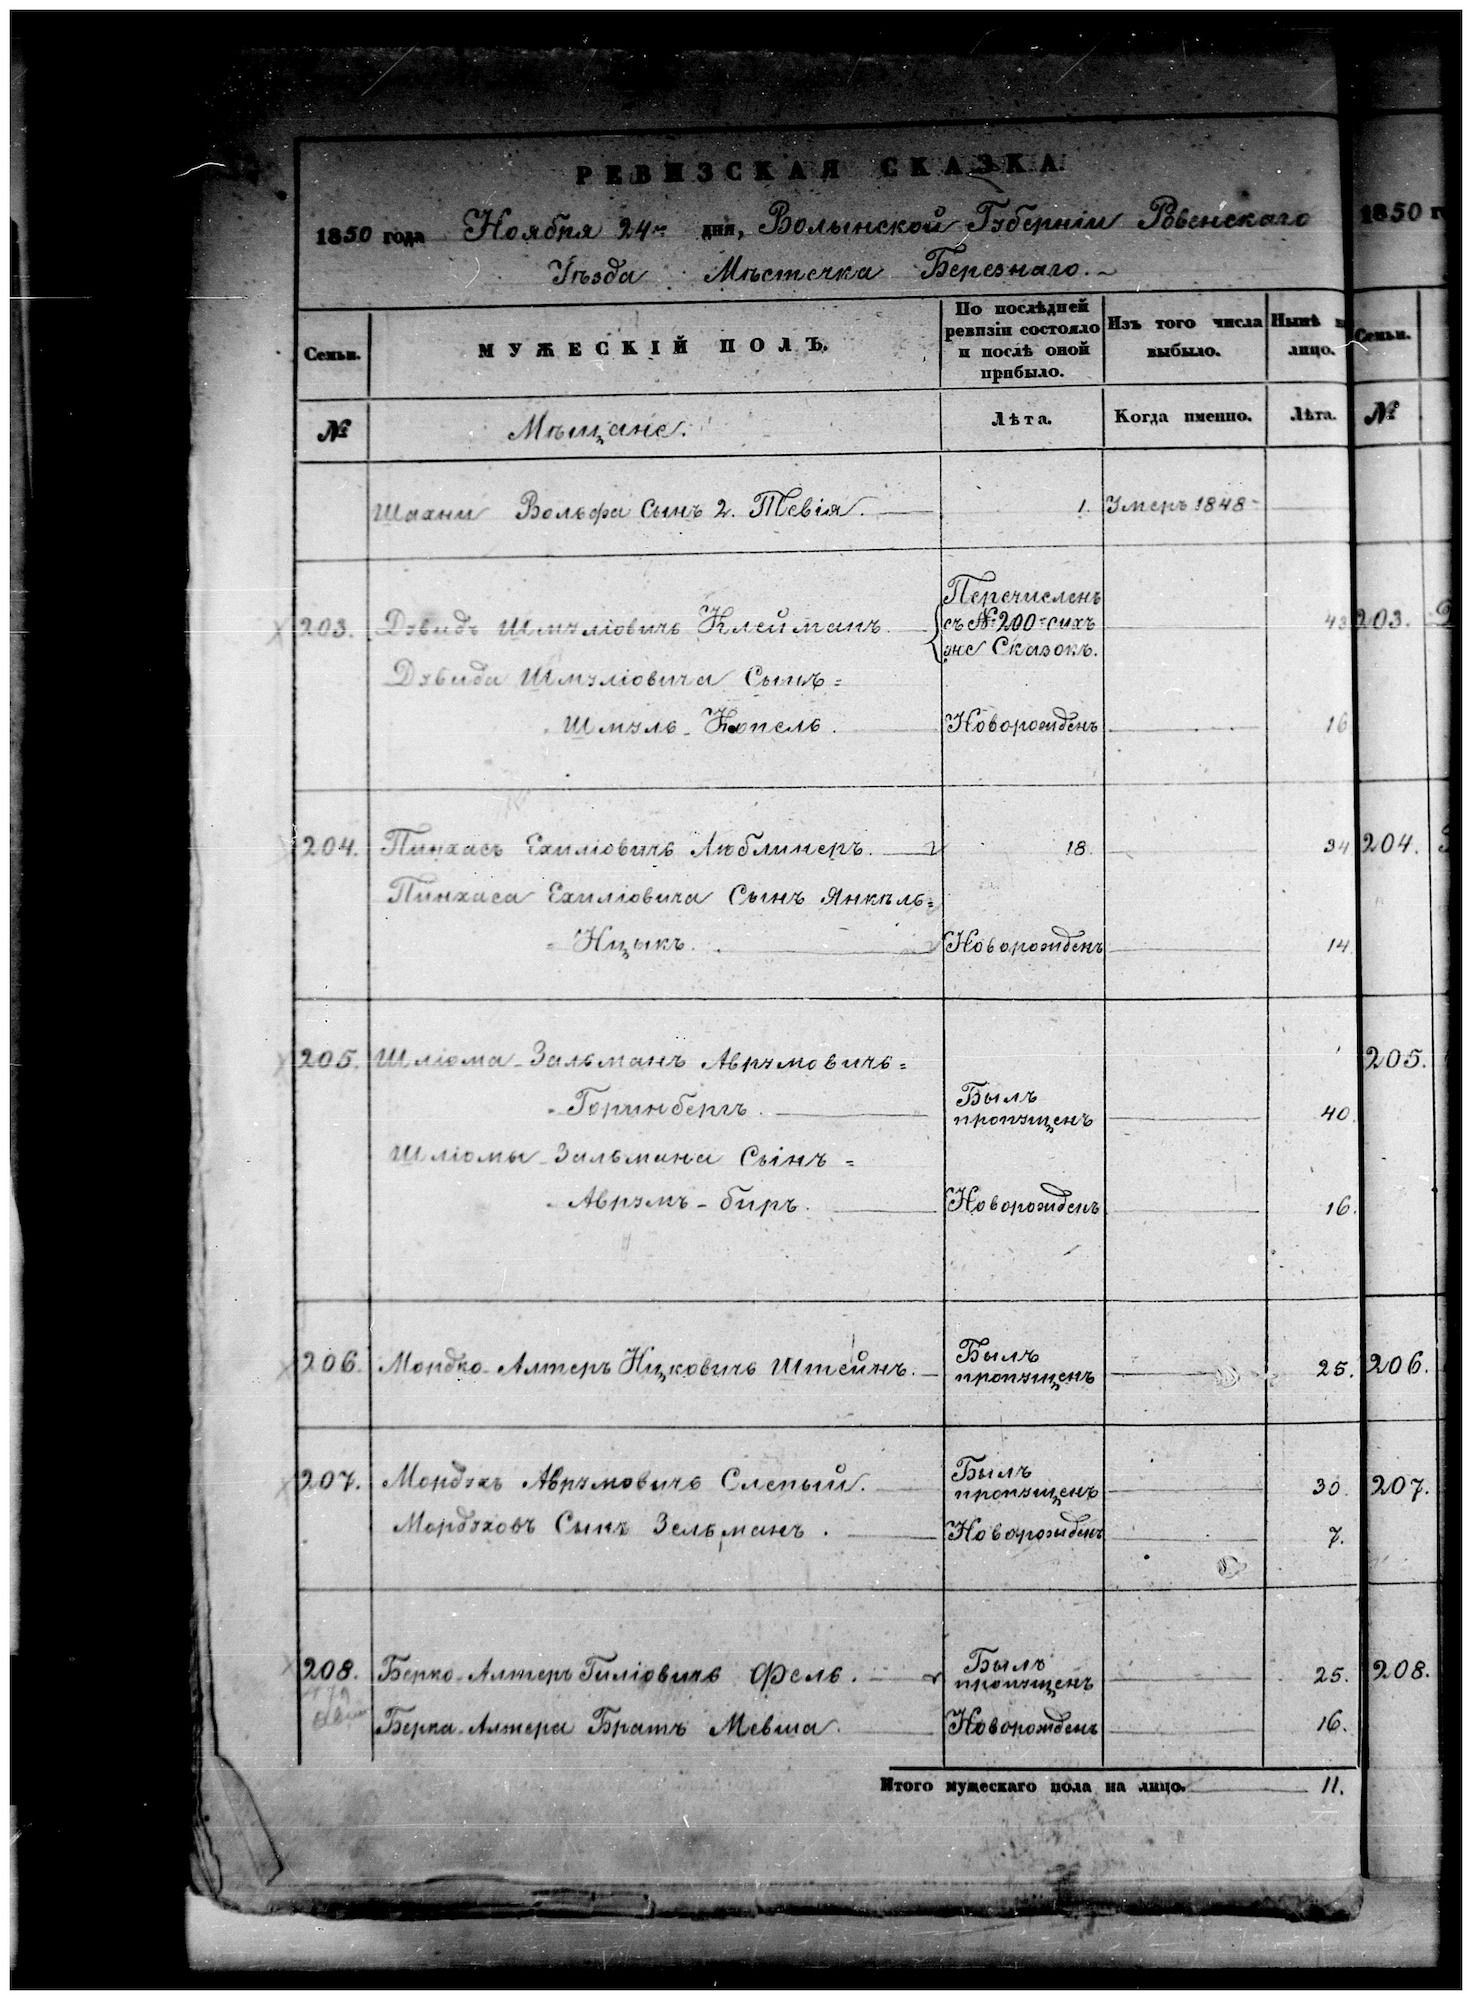 РЕВИЗСКАЯ СКАЗКА
1850 года Ноября 24го дня, Волынской Губерніи Ровенскаго
Уѣзда Мѣстечка Березнаго.
Семьи.
МУЖЕСКІЙ ПОЛЪ.
По послѣдней ревизіи состояло и послѣ оной прибыло.
Изъ того числа выбыло.
Нынѣ на лицо.
№ Мѣщане. Лѣта. Когда именно. Лѣта.
Шахни Вольфа Сынъ 2. Тевія. 1. Умеръ 1848
Перечисленъ
203. Дувидъ Шмуліовичъ Клейманъ съ № 200 сихъ 43
же Сказокъ.
Дувида Шмуліовича Сынъ=
Шмуль-Копель. Новорожденъ 16
204. Пинхасъ Ехиліовичъ Люблинеръ. 18. 34
Пинхаса Ехиліовича Сынъ Янкель=
=Ицыкъ. Новорожденъ 14
205. Шліома-Зальманъ Аврумовичъ=
Горинбергъ. Былъ пропущенъ 40.
Шліомы-Зальмана Сынъ=
Аврумъ-биръ. Новорожденъ 16.
206. Мордко-Алтеръ Ицковичъ Штейнъ. Былъ пропущенъ 25.
207. Мордухъ Аврумовичъ Слепый. Былъ пропущенъ 30.
Мордуховъ Сынъ Зельманъ. Новорожденъ 7.
208. Берко-Алтеръ Гиліовичъ Фель. Былъ пропущенъ 25.
Берка-Алтера Братъ Мевша. Новорожденъ 16.
Итого мужескаго пола на лицо. 11.
1850
Семьи.
№
203.
204.
205.
206.
207.
208.